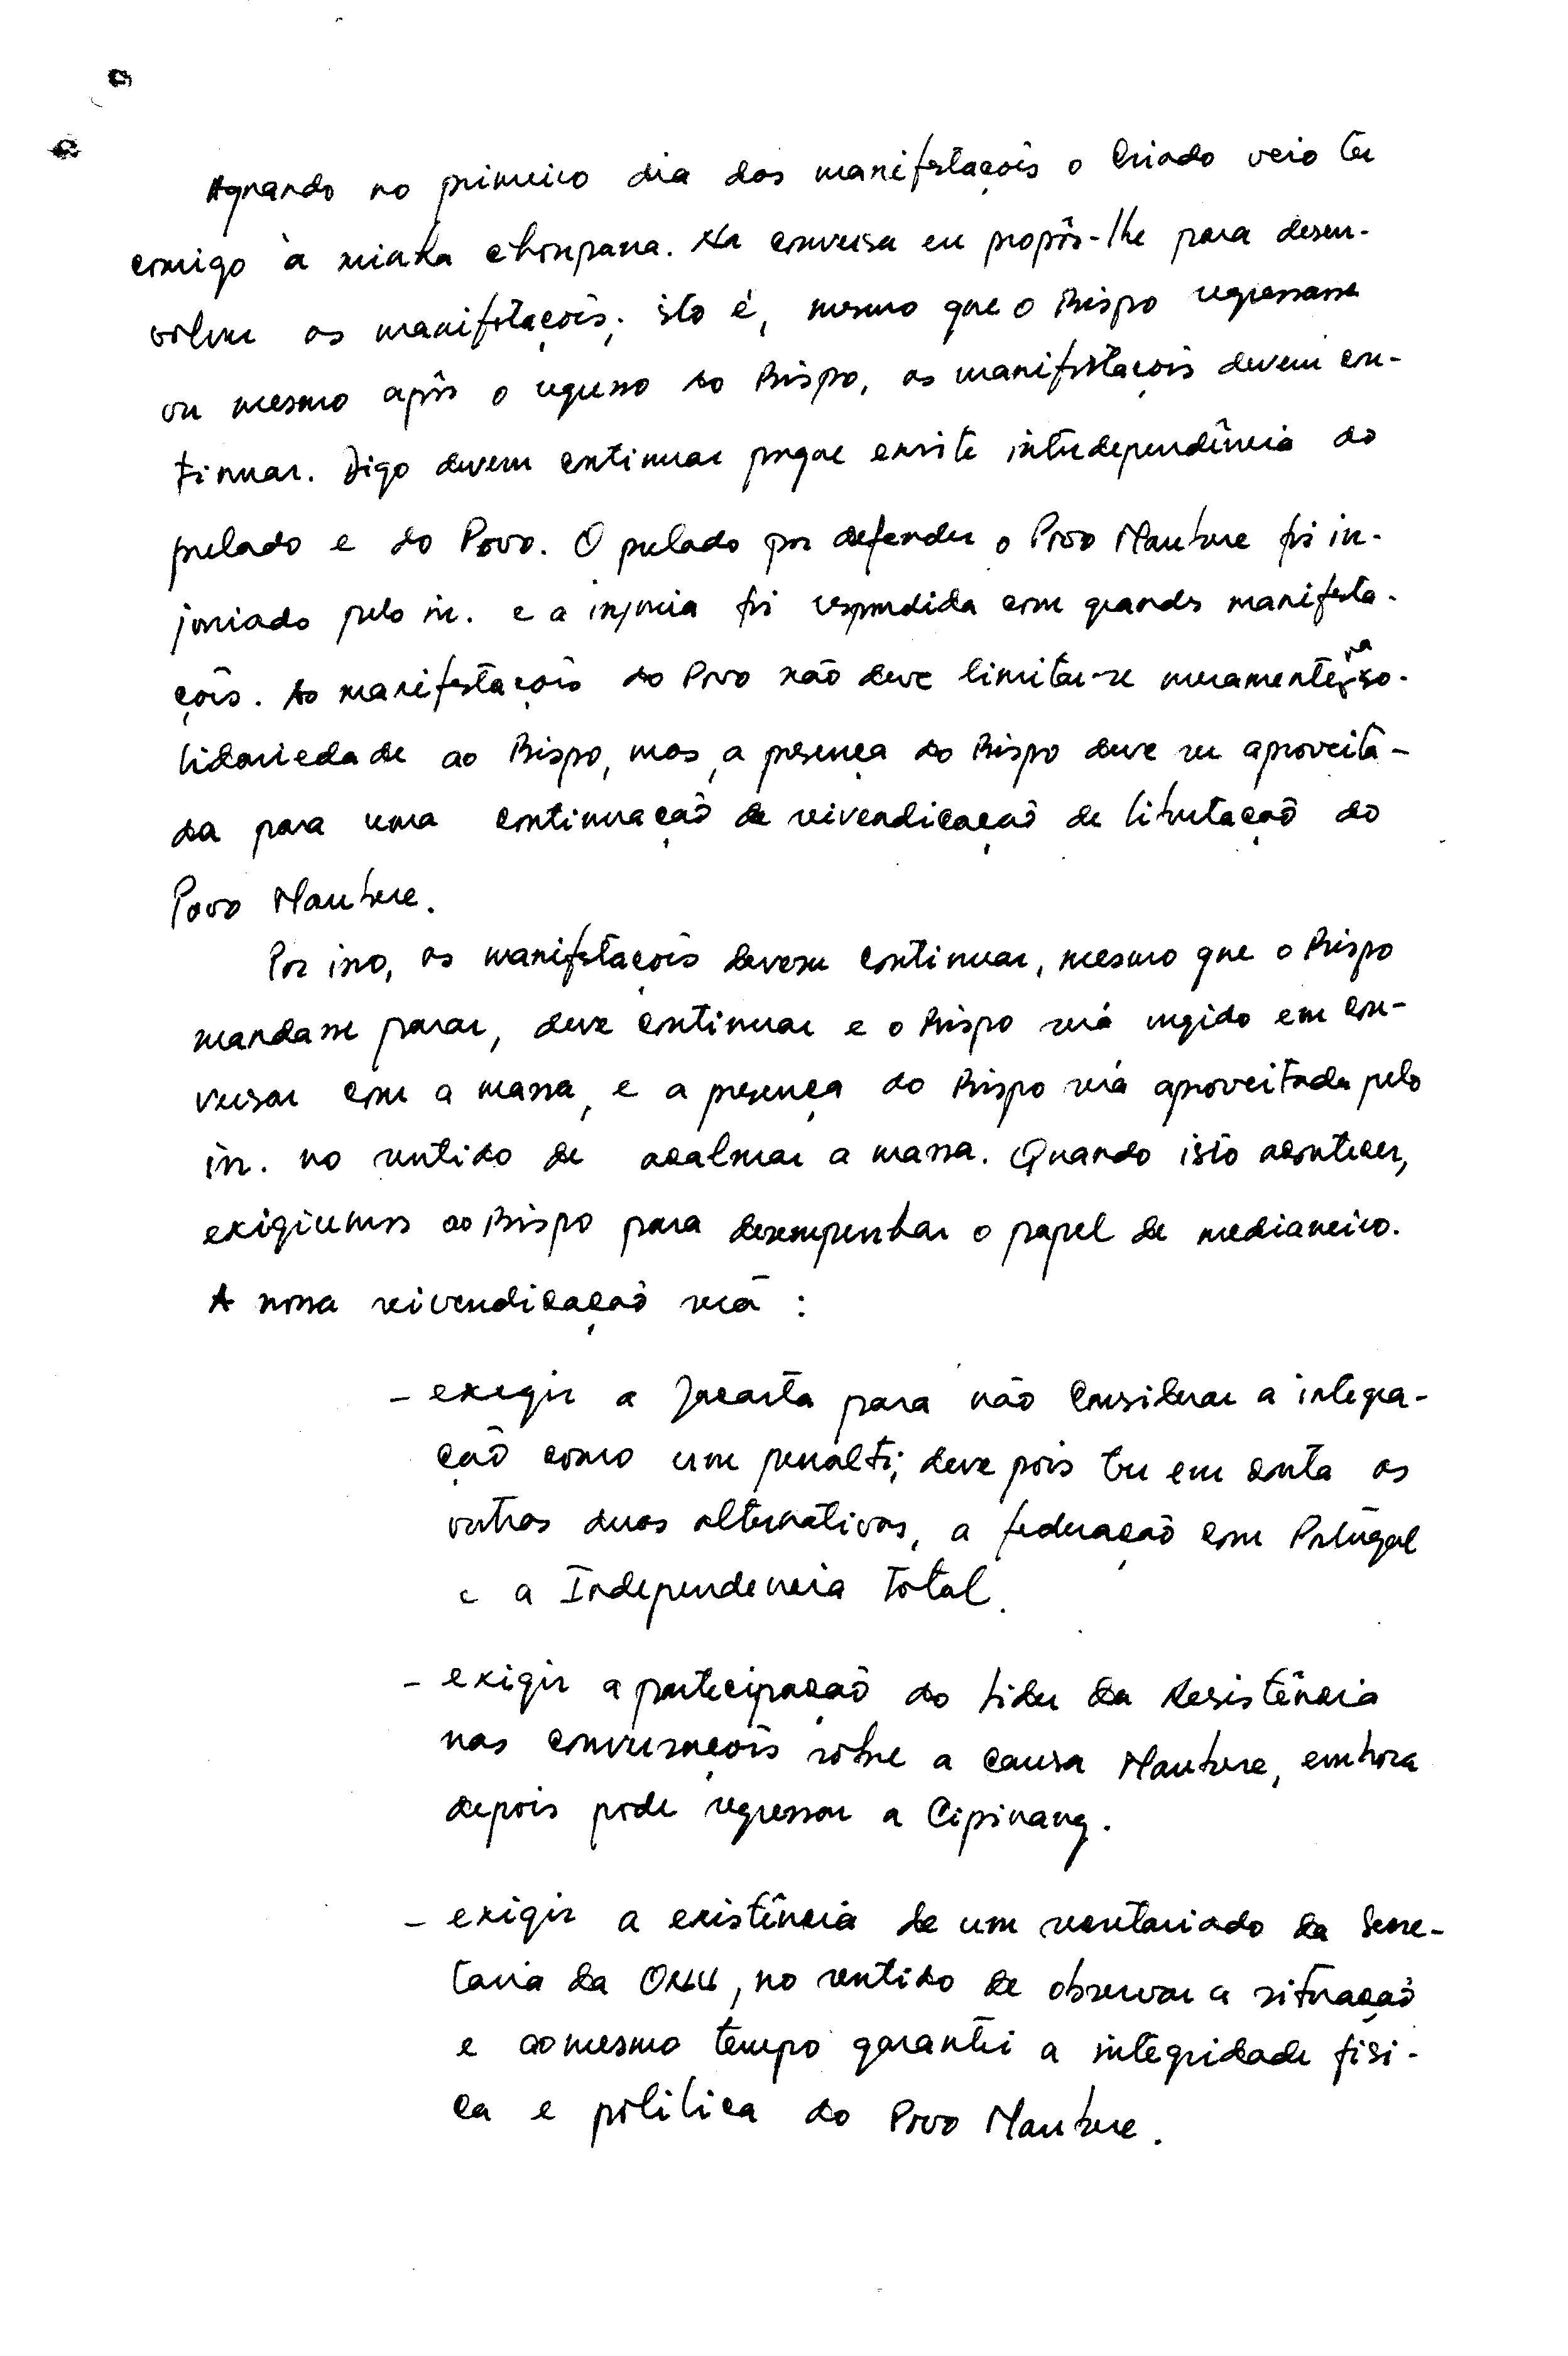 Aquando no primeiro dia das manifestações o Criado veio ter
comigo à minha choupana. Na conversa eu propôs-lhe para desen-
volver as manifestações, isto é, mesmo que o Bispo regressasse
ou mesmo após o regresso do Bispo, as manifestações devem con-
tinuar. Digo devem continuar porque existe interdependência do
prelado e do Povo. O prelado por defender o Povo Maubere foi in-
juriado pelo in. e a injuria foi respondida com grandes manifesta-
ções. As manifestações do Povo não deve limitar-se meramente na so-
lidariedade ao Bispo, mas, a presença do Bispo deve ser aproveita-
da para uma continuação de reivendicação de libertação do
Povo Maubere.
Por isso, as manifestações devem continuar, mesmo que o Bispo
mandasse parar, deve continuar e o Bispo será urgido em con-
versar com a massa, e a presença do Bispo será aproveitada pelo
in. no sentido de acalmar a massa. Quando isto acontecer,
exigiremos ao Bispo para desempenhar o papel de medianeiro.
A nossa reivendicação será :
- exegir a Jacarta para não considerar a integra-
ção como um penálti; deve pois ter em conta as
outras duas alternativas, a federação com Portugal
e a Independencia Total.
- exigir a participação do Lider da Resistência
nas conversações sôbre a causa Maubere, embora
depois pode regressar a Cipinang.
- exigir a existência de um secretariado da Secre-
taria da ONU, no sentido de observar a situação
e ao mesmo tempo garantir a integridade fisi-
ca e politica do Povo Maubere.